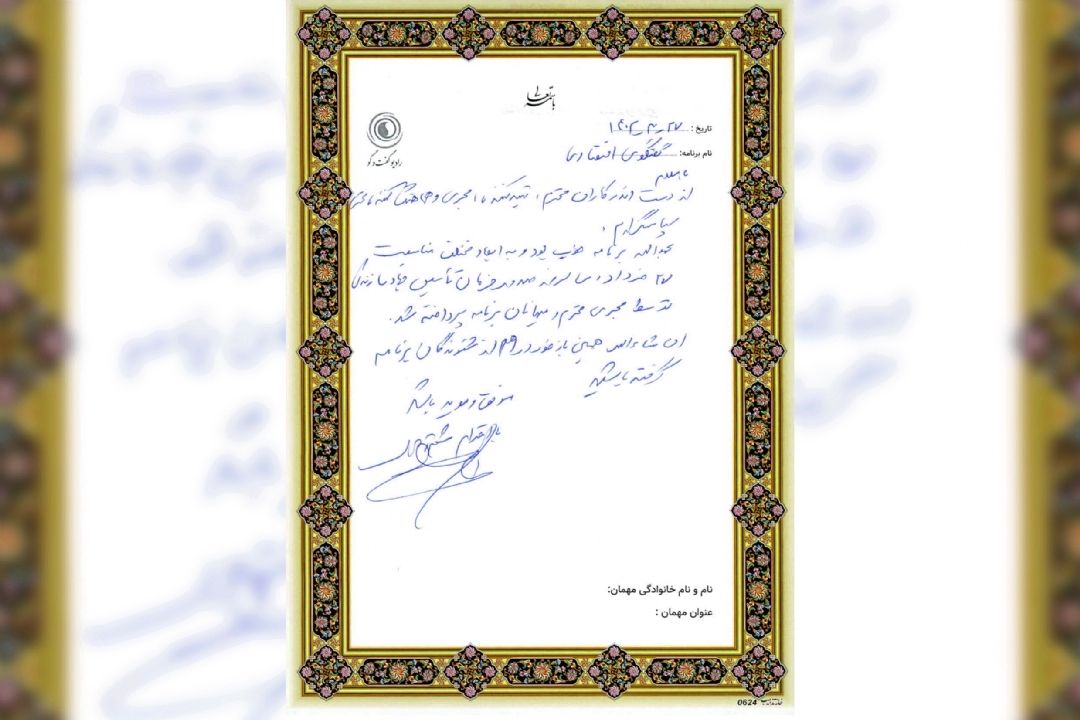 باسمه تعالی
رادیو گفت و گو
تاریخ: ۲۷-۳-۱۴۰۲
نام برنامه: گفتگوی اقتصادی
باسلام
از دست اندرکاران محترم، تهیه کننده، مجری و هماهنگ کننده محترم
سپاسگزارم.
بحمدالله برنامه خوب بود و به ابعاد مختلف مناسبت
۲۷ خرداد، سالروز صدور فرمان تأسیس جهاد سازندگی
توسط مجری محترم و میهمانان برنامه پرداخته شد.
ان شاءالله همین بازخورد را هم از شنوندگان برنامه
گرفته باشید
موفق و موید باشید
با احترام
نام و نام خانوادگی مهمان:
عنوان مهمان :
0624